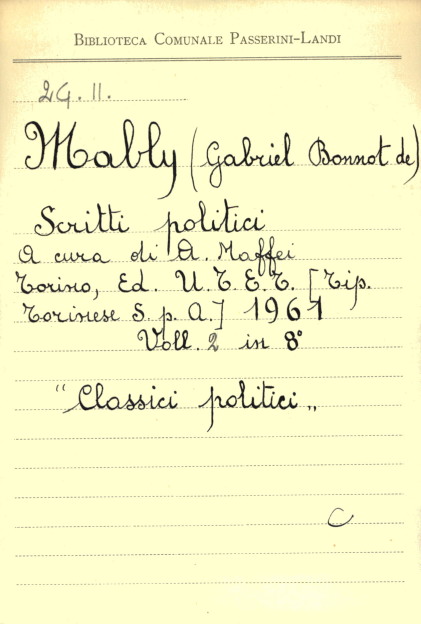 BIBLIOTECA COMUNALE PASSERINI-LANDI
2G.II.
Mably (Gabriel Bonnot de)
Scritti politici
A cura di A. Maffei
Torino, Ed. U.T.E.T. [Tip.
Torinese S.p.A.] 1961
Voll. 2 in 8°
"Classici politici„
C